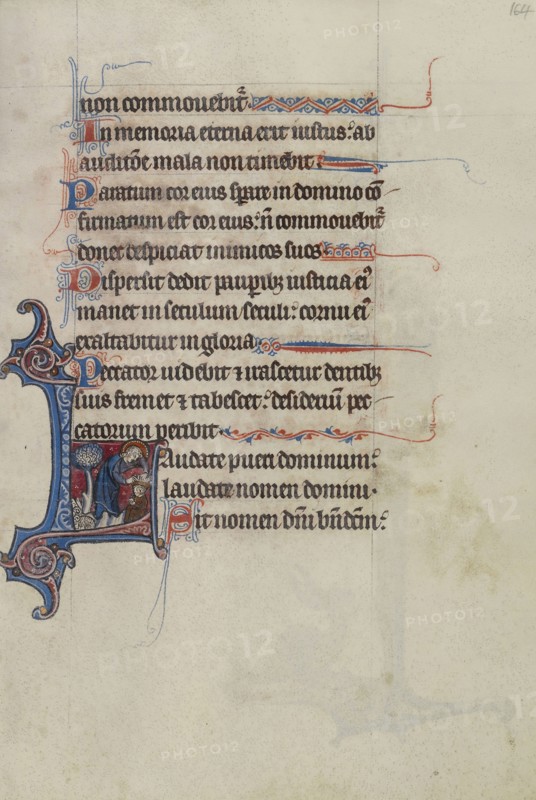 164
non commouebit᷑.
In memoria eterna erit iustus: ab
auditōe mala non timebit.
Paratum cor eius sꝑare in domino cō
firmatum est cor eius: ñ commouebit᷑
donec despiciat inimicos suos
Dispersit dedit pauꝑibꝫ iusticia eiꝰ
manet in seculum seculi: cornu eiꝰ
exaltabitur in gloria.
Peccator uidebit ⁊ irascetur dentibꝫ
suis fremet ⁊ tabescet: desideriū pec
catorum peribit.
Laudate pueri dominum:
laudate nomen domini.
Sit nomen dn̄i bn̄dcm̄:
PHOTO12